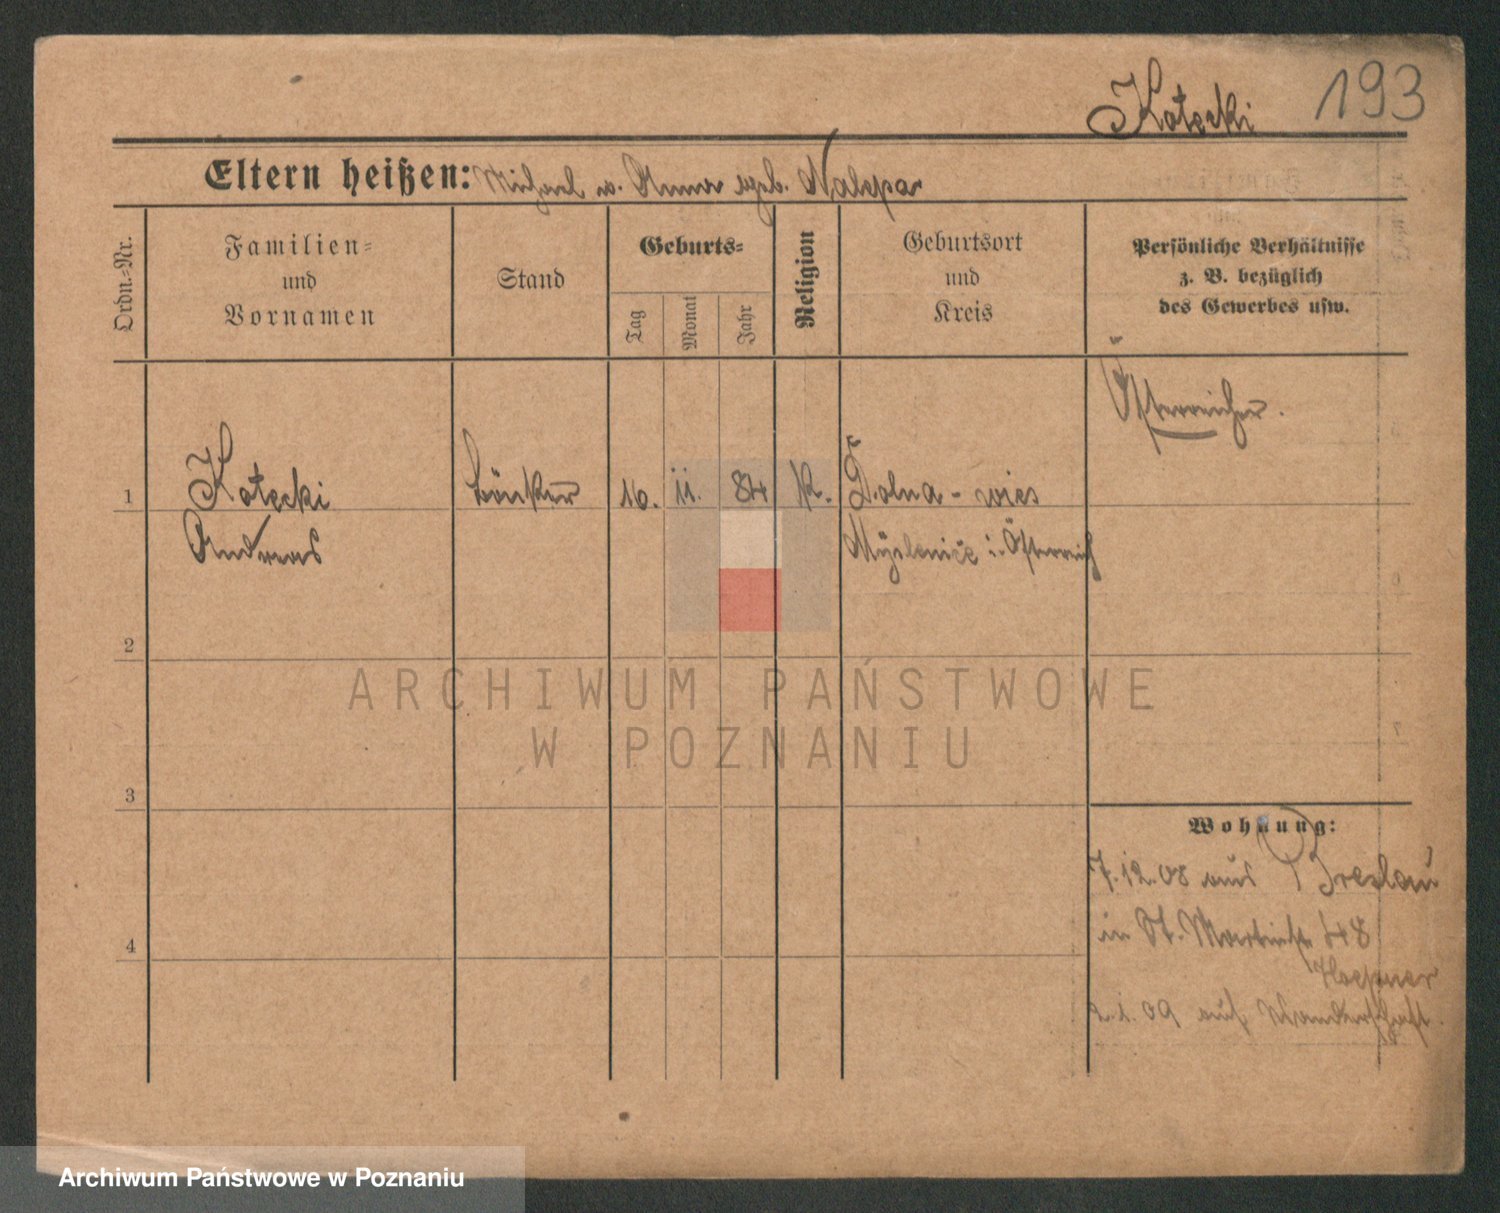 Kotecki 193
Eltern heißen: Michael u. Anna geb. Nalepar
Ordn.=Nr.
Familien=
und
Vornamen
Stand
Geburts=
Tag
Monat
Jahr
Religion
Geburtsort
und
Kreis
Persönliche Verhältnisse
z. B. bezüglich
des Gewerbes usw.
Österreicher.
1 Kotecki 16. 11. 84 K. Dolna - wies
Andreas Myslenice i. Österreich
2
3
4
Wohnung:
7.12.08 aus Breslau
in St. Martinstr. 48
Hoepner
2.1.09 auf Wanderschaft.
ARCHIWUM PAŃSTWOWE
W POZNANIU
Archiwum Państwowe w Poznaniu